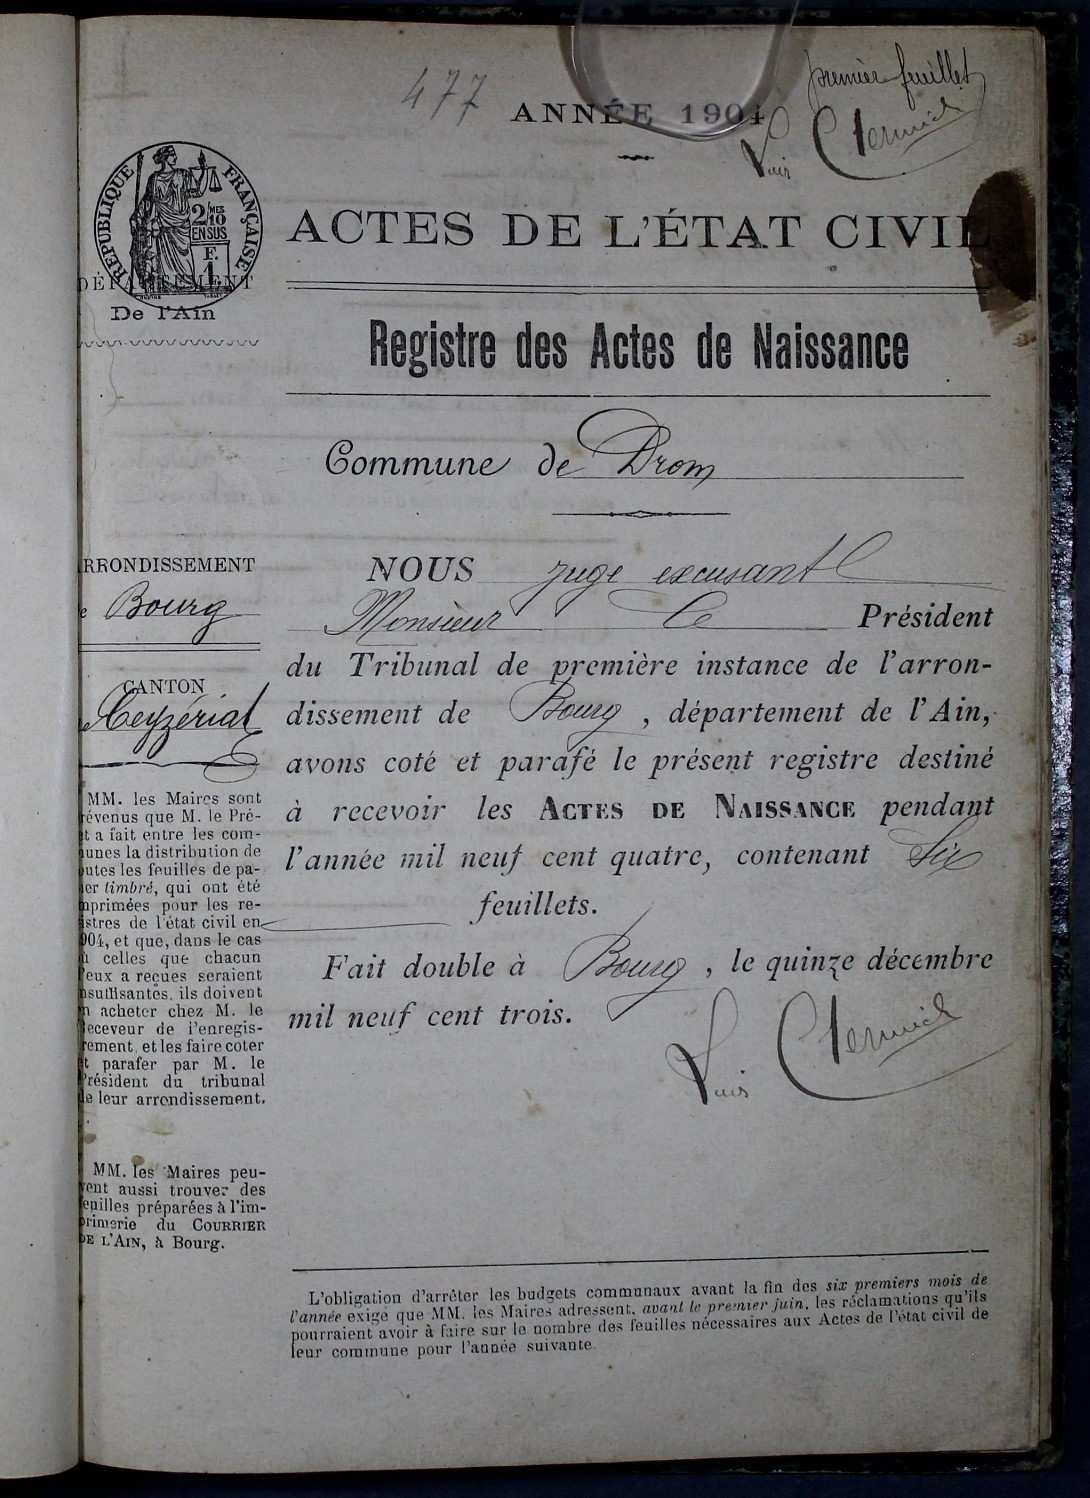 premier feuillet
477
ANNÉE 1904
RÉPUBLIQUE FRANÇAISE
2/10 MES
EN SUS
F.
1
ACTES DE L'ÉTAT CIVIL
DÉPARTEMENT
De l'Ain
Registre des Actes de Naissance
Commune de Drom
RRONDISSEMENT
e Bourg
CANTON
Ceyzériat
MM. les Maires sont
révenus que M. le Pré-
t a fait entre les com-
unes la distribution de
outes les feuilles de pa-
ier timbré, qui ont été
mprimées pour les re-
istres de l'état civil en
904, et que, dans le cas
ù celles que chacun
'eux a reçues seraient
nsuffisantes, ils doivent
n acheter chez M. le
Receveur de l'enregis-
rement, et les faire coter
t parafer par M. le
Président du tribunal
de leur arrondissement.
MM. les Maires peu-
vent aussi trouver des
feuilles préparées à l'im-
primerie du COURRIER
DE L'AIN, à Bourg.
NOUS juge excusant
Monsieur le Président
du Tribunal de première instance de l'arron-
dissement de Bourg, département de l'Ain,
avons coté et parafé le présent registre destiné
à recevoir les ACTES DE NAISSANCE pendant
l'année mil neuf cent quatre, contenant Six
feuillets.
Fait double à Bourg, le quinze décembre
mil neuf cent trois.
L'obligation d'arrêter les budgets communaux avant la fin des six premiers mois de
l'année exige que MM. les Maires adressent, avant le premier juin, les réclamations qu'ils
pourraient avoir à faire sur le nombre des feuilles nécessaires aux Actes de l'état civil de
leur commune pour l'année suivante.